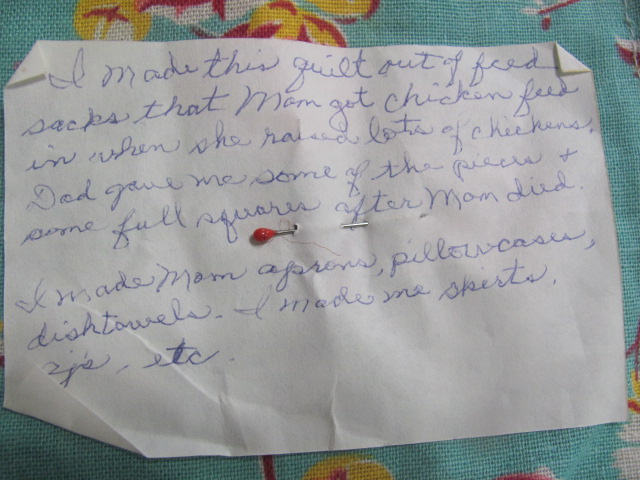 I made this quilt out of feed
sacks that Mom got chicken feed
in when she raised lots of chickens.
Dad gave me some of the pieces +
some full squares after Mom died.
I made Mom aprons, pillowcases,
dishtowels. I made me skirts,
pj's, etc.